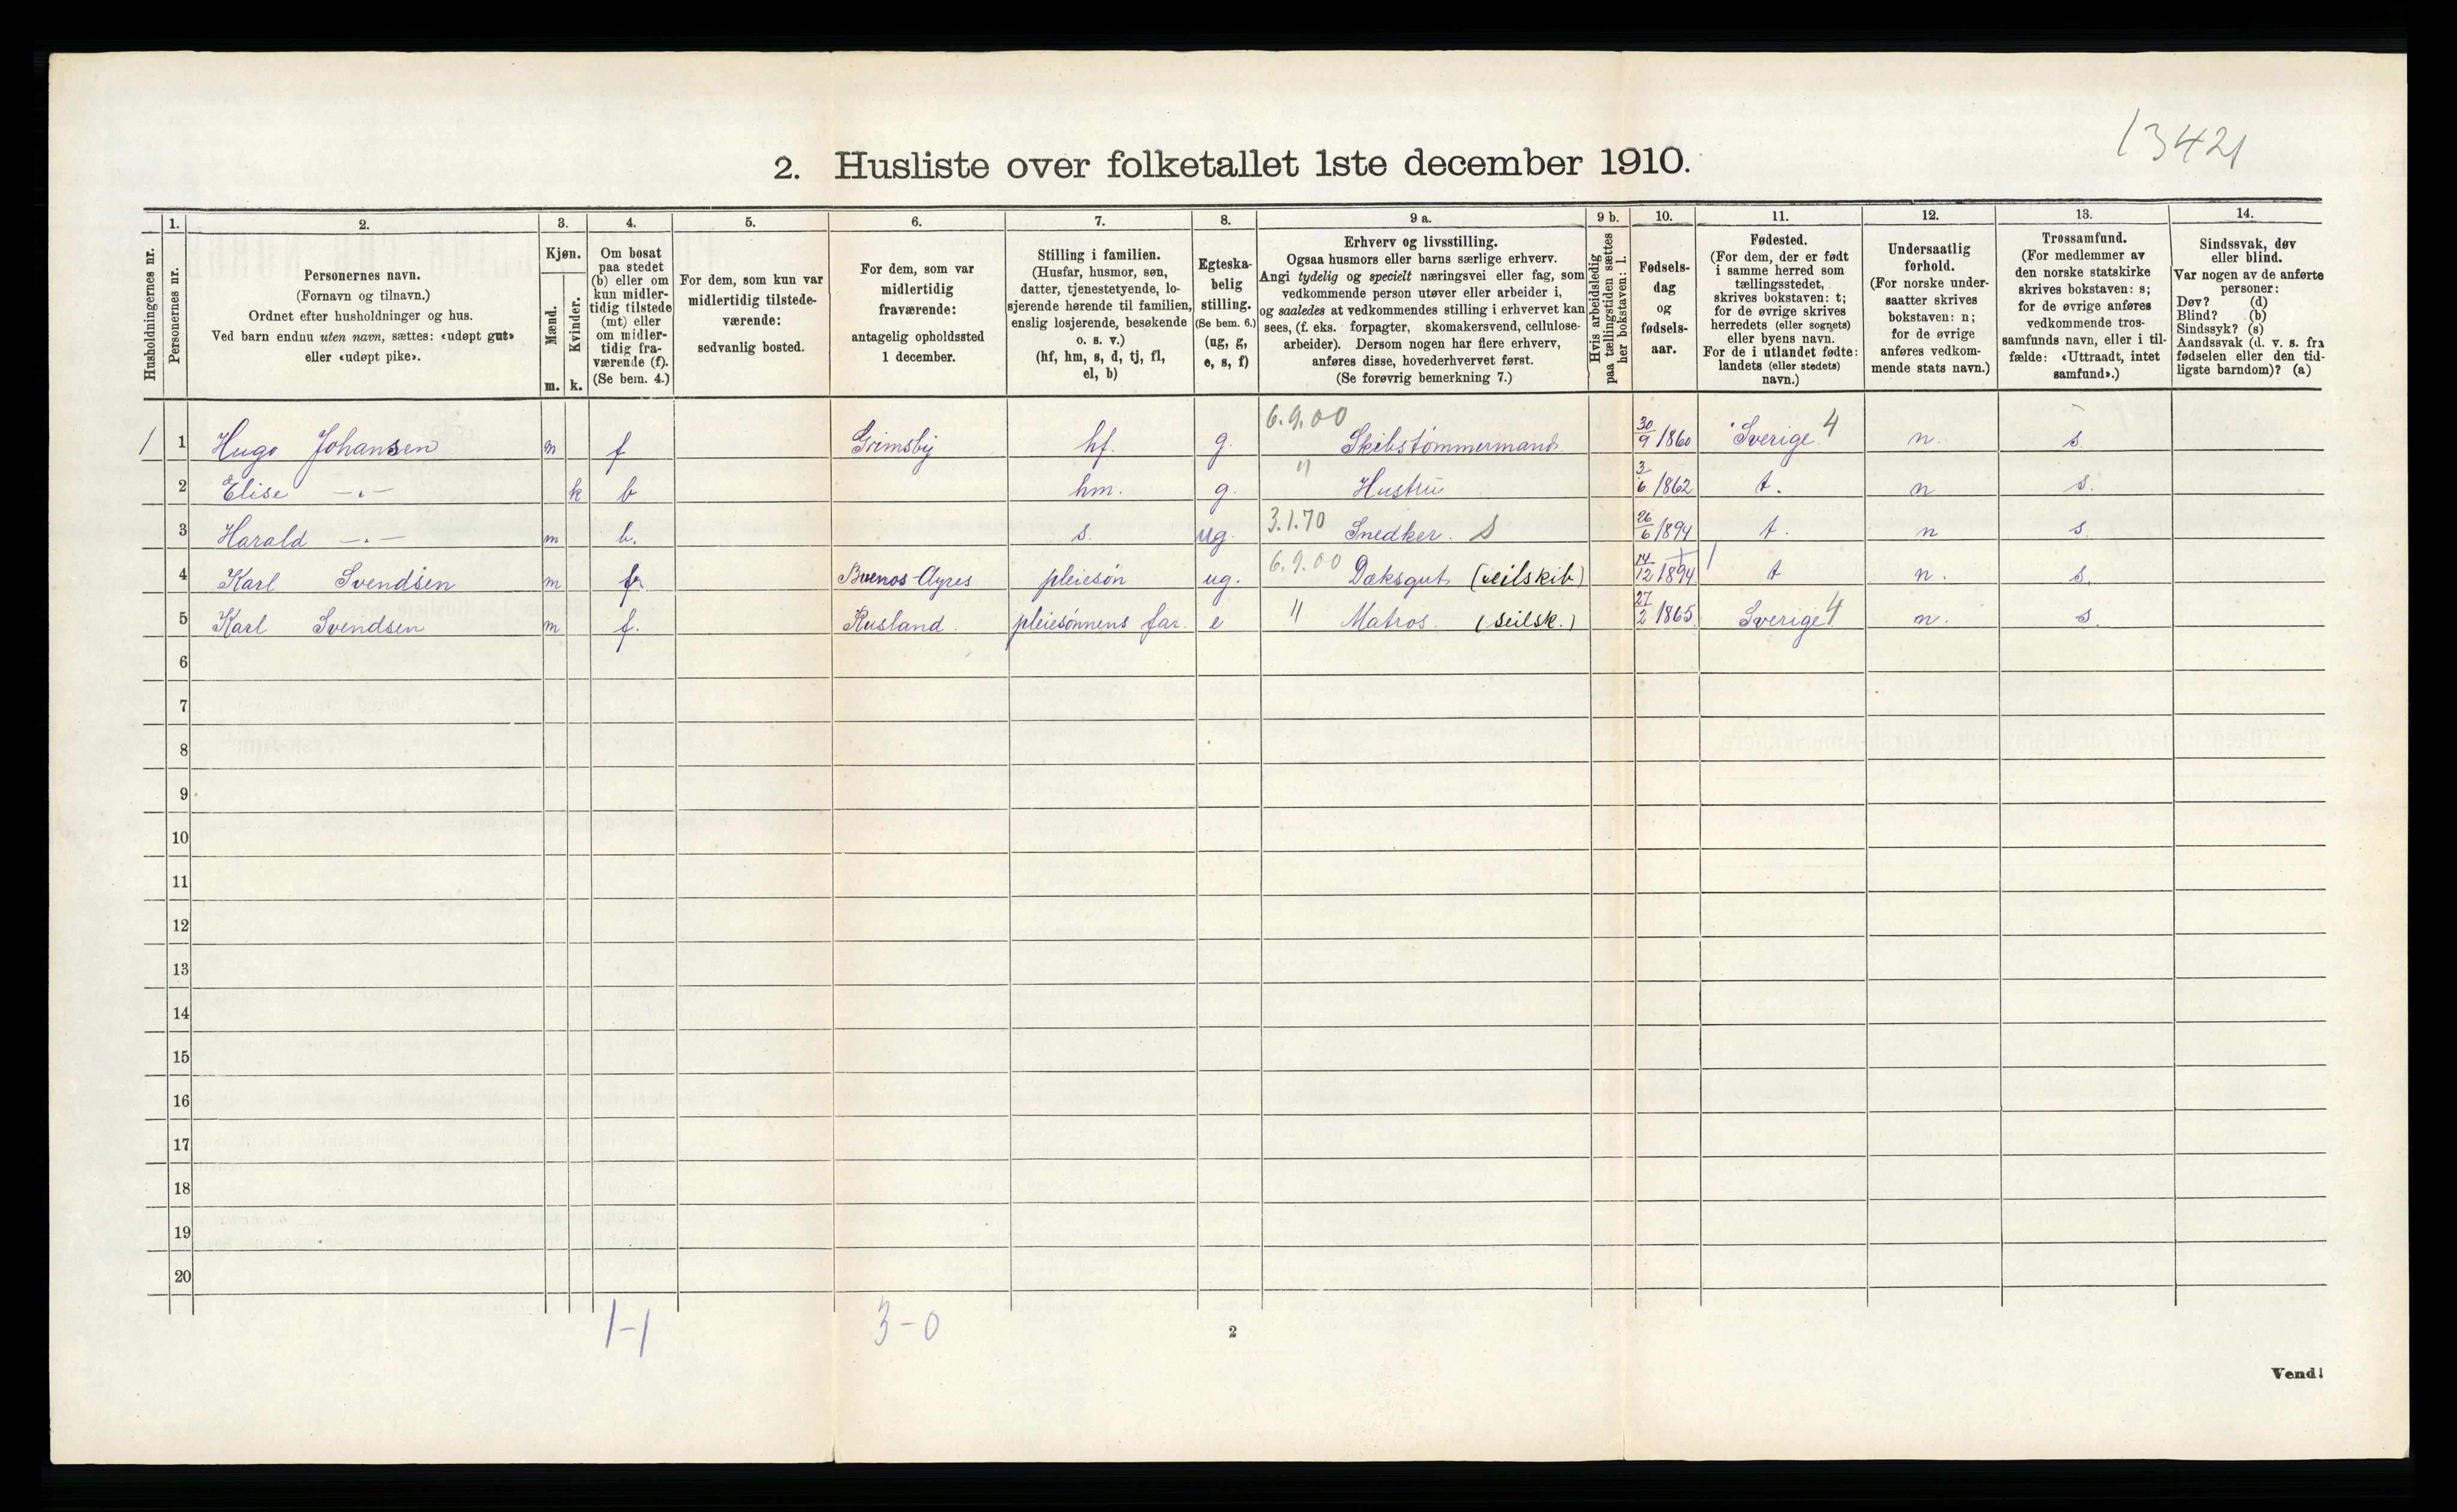 13421
2. Husliste over folketallet 1ste december 1910.
1. 2. 3. 4. 5. 6. 7. 8. 9 a. 9 b. 10. 11. 12. 13. 14.
Husholdningernes nr.
Personernes nr.
Personernes navn.
(Fornavn og tilnavn.)
Ordnet efter husholdninger og hus.
Ved barn endnu uten navn, sættes: «udøpt gut»
eller «udøpt pike».
Kjøn.
Mænd.
Kvinder.
m. k.
Om bosat
paa stedet
(b) eller om
kun midler-
tidig tilstede
(mt) eller
om midler-
tidig fra-
værende (f).
(Se bem. 4.)
For dem, som kun var
midlertidig tilstede-
værende:
sedvanlig bosted.
For dem, som var
midlertidig
fraværende:
antagelig opholdssted
1 december.
Stilling i familien.
(Husfar, husmor, søn,
datter, tjenestetyende, lo-
sjerende hørende til familien,
enslig losjerende, besøkende
o. s. v.)
(hf, hm, s, d, tj, fl,
el, b)
Egteska-
belig
stilling.
(Se bem. 6.)
(ug, g,
e, s, f)
Erhverv og livsstilling.
Ogsaa husmors eller barns særlige erhverv.
Angi tydelig og specielt næringsvei eller fag, som
vedkommende person utøver eller arbeider i,
og saaledes at vedkommendes stilling i erhvervet kan
sees, (f. eks. forpagter, skomakersvend, cellulose-
arbeider). Dersom nogen har flere erhverv,
anføres disse, hovederhvervet først.
(Se forøvrig bemerkning 7.)
Hvis arbeidsledig
paa tællingstiden sættes
her bokstaven: l.
Fødsels-
dag
og
fødsels-
aar.
Fødested.
(For dem, der er født
i samme herred som
tællingsstedet,
skrives bokstaven: t;
for de øvrige skrives
herredets (eller sognets)
eller byens navn.
For de i utlandet fødte:
landets (eller stedets)
navn.)
Undersaatlig
forhold.
(For norske under-
saatter skrives
bokstaven: n;
for de øvrige
anføres vedkom-
mende stats navn.)
Trossamfund.
(For medlemmer av
den norske statskirke
skrives bokstaven: s;
for de øvrige anføres
vedkommende tros-
samfunds navn, eller i til-
fælde: «Uttraadt, intet
samfund».)
Sindssvak, døv
eller blind.
Var nogen av de anførte
personer:
Døv? (d)
Blind? (b)
Sindssyk? (s)
Aandssvak (d. v. s. fra
fødselen eller den tid-
ligste barndom)? (a)
1 1 Hugo Johansen m f Grimsby hf. g. 6.9.00 Skibstømmermand 30/9 1860 Sverige 4 n. s.
2 Elise -"- k b hm. g. " Hustru 3/6 1862 t. n s.
3 Harald -"- m b. s. ug. 3.1.70 Snedker. S 26/6 1894 t. n s.
4 Karl Svendsen m f. Buenos-Ayres pleiesøn ug. 6.9.00 Dæksgut (seilskib) 14/12 1894 t n. s.
5 Karl Svendsen m f. Rusland. pleiesønnens far. e " Matros. (seilsk.) 27/2 1865 Sverige 4 n. s.
6
7
8
9
10
11
12
13
14
15
16
17
18
19
20
1-1 3-0
2
Vend!